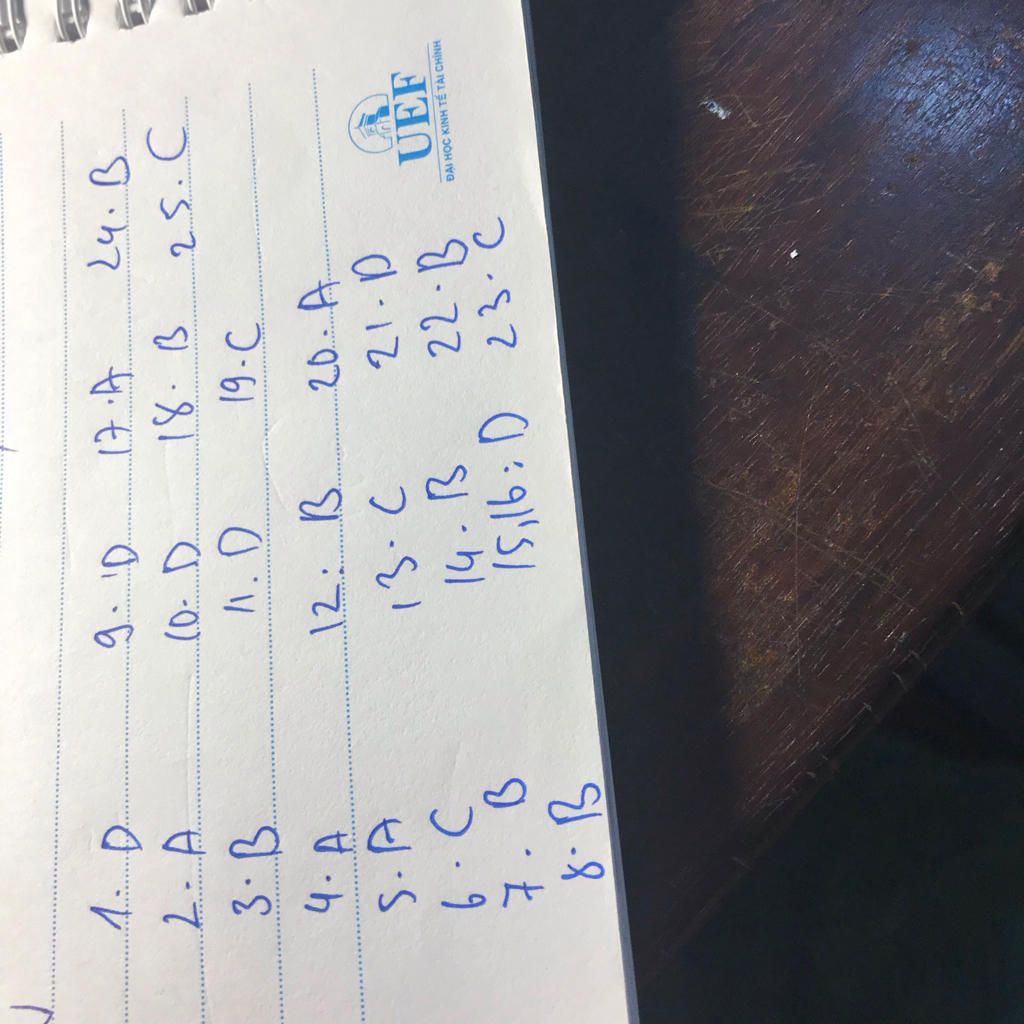 1. D
2. A
3. B
4. A
5. A
6. C
7. B
8. B
9. D
10. D
11. D
12. B
13. C
14. B
15,16: D
17. A
18. B
19. C
20. A
21. D
22. B
23. C
24. B
25. C
UEF
ĐẠI HỌC KINH TẾ TÀI CHÍNH